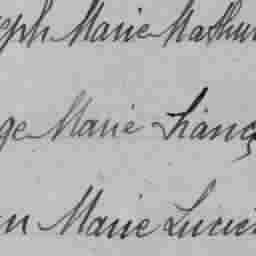 eph Marie Mathu
ge Marie Franç
n Marie Lucie